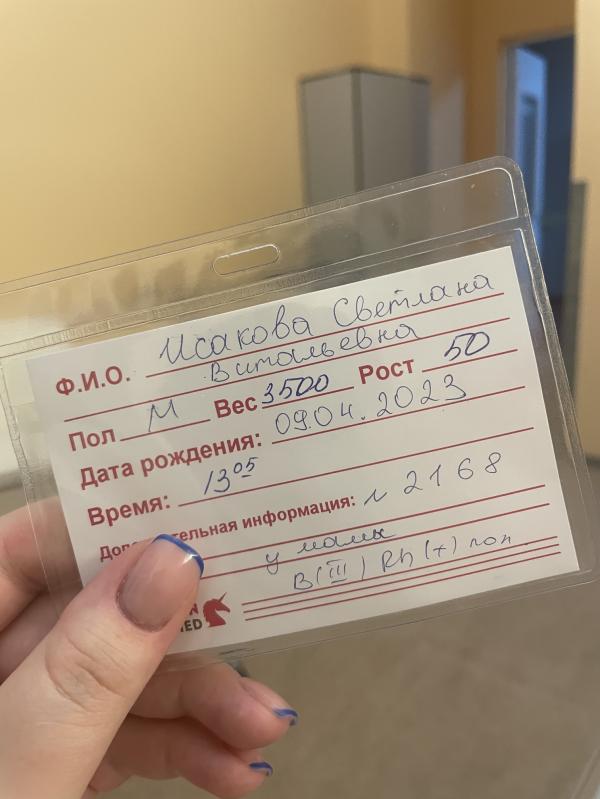 Ф.И.О. Исакова Светлана
Витальевна
Пол М Вес 3500 Рост 50
Дата рождения: 09.04.2023
Время: 13 05
информация: № 2168
у мамы
B(III) Rh(+) пол